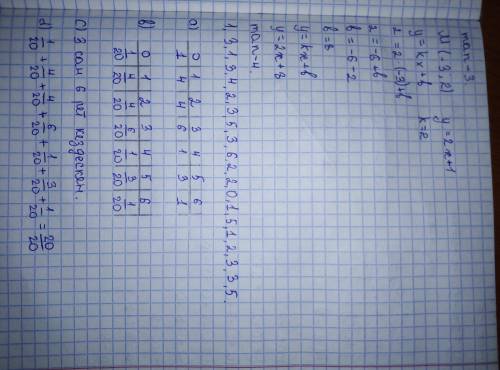 тап-3
M (-3, 2) y = 2x+1
y = kx+b k=2
2 = 2·(-3)+b
2 = -6+b
b = -6-2
b = 8
y = kx+b
y = 2x+8
тап-4.
1, 3, 1, 3, 4, 2, 3, 5, 3, 6, 2, 2, 0, 1, 5, 1, 2, 3, 3, 5.
a) 0 1 2 3 4 5 6
1 4 4 6 1 3 1
b) 0 1 2 3 4 5 6
1/20 4/20 4/20 6/20 1/20 3/20 1/20
c) 3 сан 6 рет кездескен.
d) 1/20 + 4/20 + 4/20 + 6/20 + 1/20 + 3/20 + 1/20 = 20/20